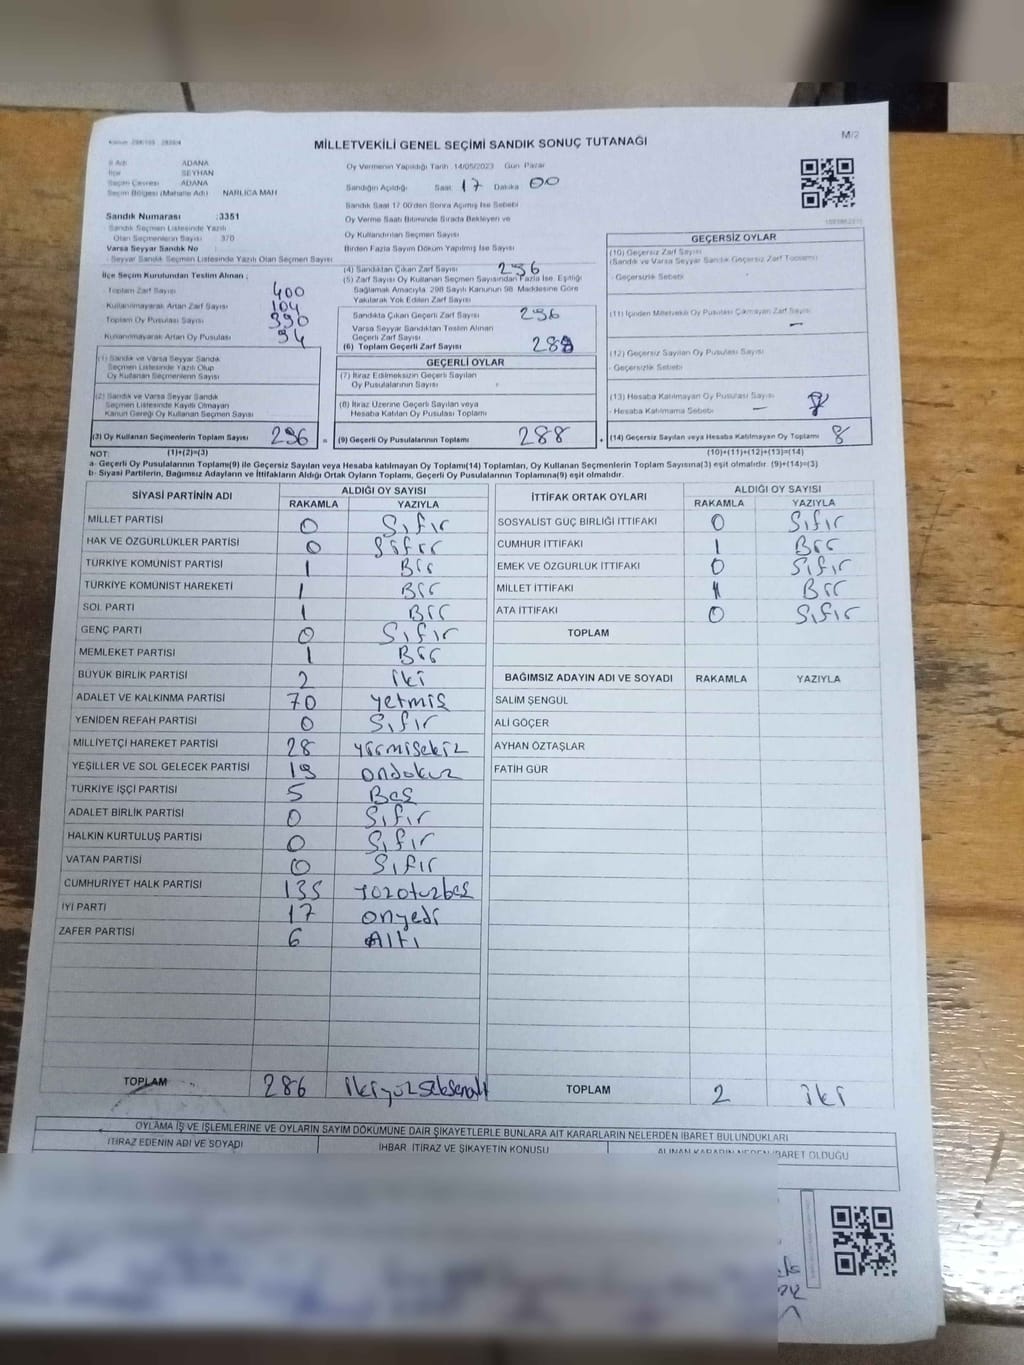 MİLLETVEKİLİ GENEL SEÇİMİ SANDIK SONUÇ TUTANAĞI
M/2
İl Adı ADANA
İlçe SEYHAN
Seçim Çevresi ADANA
Seçim Bölgesi (Mahalle Adı) NARLICA MAH
Sandık Numarası :3351
Sandık Seçmen Listesinde Yazılı
Olan Seçmenlerin Sayısı : 370
Varsa Seyyar Sandık No
- Seyyar Sandık Seçmen Listesinde Yazılı Olan Seçmen Sayısı
İlçe Seçim Kurulundan Teslim Alınan ;
- Toplam Zarf Sayısı 400
Kullanılmayarak Artan Zarf Sayısı 104
Toplam Oy Pusulası Sayısı 390
Kullanılmayarak Artan Oy Pusulası 94
(1) Sandık ve Varsa Seyyar Sandık
Seçmen Listesinde Yazılı Olup
Oy Kullanan Seçmenlerin Sayısı
(2) Sandık ve Varsa Seyyar Sandık
Seçmen Listesinde Kayıtlı Olmayan
Kanun Gereği Oy Kullanan Seçmen Sayısı
(3) Oy Kullanan Seçmenlerin Toplam Sayısı 296 =
Oy Vermenin Yapıldığı Tarih :14/05/2023 Gün Pazar
Sandığın Açıldığı Saat 17 Dakika 00
Sandık Saat 17.00'den Sonra Açılmış İse Sebebi
Oy Verme Saati Bitiminde Sırada Bekleyen ve
Oy Kullandırılan Seçmen Sayısı
Birden Fazla Sayım Döküm Yapılmış İse Sayısı
(4) Sandıktan Çıkan Zarf Sayısı 296
(5) Zarf Sayısı Oy Kullanan Seçmen Sayısından Fazla İse, Eşitliği
Sağlamak Amacıyla, 298 Sayılı Kanunun 98. Maddesine Göre
Yakılarak Yok Edilen Zarf Sayısı
Sandıkta Çıkan Geçerli Zarf Sayısı 296
Varsa Seyyar Sandıktan Teslim Alınan
Geçerli Zarf Sayısı
(6) Toplam Geçerli Zarf Sayısı 288
GEÇERLİ OYLAR
(7) İtiraz Edilmeksizin Geçerli Sayılan
Oy Pusulalarının Sayısı
(8) İtiraz Üzerine Geçerli Sayılan veya
Hesaba Katılan Oy Pusulası Toplamı
(9) Geçerli Oy Pusulalarının Toplamı 288 +
GEÇERSİZ OYLAR
(10) Geçersiz Zarf Sayısı
(Sandık ve Varsa Seyyar Sandık Geçersiz Zarf Toplamı)
- Geçersizlik Sebebi
(11) İçinden Milletvekili Oy Pusulası Çıkmayan Zarf Sayısı
–
(12) Geçersiz Sayılan Oy Pusulası Sayısı
- Geçersizlik Sebebi
(13) Hesaba Katılmayan Oy Pusulası Sayısı 8
- Hesaba Katılmama Sebebi –
(14) Geçersiz Sayılan veya Hesaba Katılmayan Oy Toplamı 8
NOT: (1)+(2)=(3) (10)+(11)+(12)+(13)=(14)
a- Geçerli Oy Pusulalarının Toplamı(9) ile Geçersiz Sayılan veya Hesaba katılmayan Oy Toplamı(14) Toplamları, Oy Kullanan Seçmenlerin Toplam Sayısına(3) eşit olmalıdır. (9)+(14)=(3)
b- Siyasi Partilerin, Bağımsız Adayların ve İttifakların Aldığı Ortak Oyların Toplamı, Geçerli Oy Pusulalarının Toplamına(9) eşit olmalıdır.
SİYASİ PARTİNİN ADI ALDIĞI OY SAYISI
RAKAMLA YAZIYLA
MİLLET PARTİSİ 0 Sıfır
HAK VE ÖZGÜRLÜKLER PARTİSİ 0 Sıfır
TÜRKİYE KOMÜNİST PARTİSİ 1 Bir
TÜRKİYE KOMÜNİST HAREKETİ 1 Bir
SOL PARTİ 1 Bir
GENÇ PARTİ 0 Sıfır
MEMLEKET PARTİSİ 1 Bir
BÜYÜK BİRLİK PARTİSİ 2 iki
ADALET VE KALKINMA PARTİSİ 70 yetmiş
YENİDEN REFAH PARTİSİ 0 Sıfır
MİLLİYETÇİ HAREKET PARTİSİ 28 yirmisekiz
YEŞİLLER VE SOL GELECEK PARTİSİ 19 ondokuz
TÜRKİYE İŞÇİ PARTİSİ 5 Beş
ADALET BİRLİK PARTİSİ 0 Sıfır
HALKIN KURTULUŞ PARTİSİ 0 Sıfır
VATAN PARTİSİ 0 Sıfır
CUMHURİYET HALK PARTİSİ 135 yüzotuzbeş
İYİ PARTİ 17 onyedi
ZAFER PARTİSİ 6 Altı
TOPLAM 286 ikiyüzseksenaltı
İTTİFAK ORTAK OYLARI ALDIĞI OY SAYISI
RAKAMLA YAZIYLA
SOSYALİST GÜÇ BİRLİĞİ İTTİFAKI 0 Sıfır
CUMHUR İTTİFAKI 1 Bir
EMEK VE ÖZGÜRLÜK İTTİFAKI 0 Sıfır
MİLLET İTTİFAKI 1 Bir
ATA İTTİFAKI 0 Sıfır
TOPLAM
BAĞIMSIZ ADAYIN ADI VE SOYADI RAKAMLA YAZIYLA
SALİM ŞENGÜL
ALİ GÖÇER
AYHAN ÖZTAŞLAR
FATİH GÜR
TOPLAM 2 iki
OYLAMA İŞ VE İŞLEMLERİNE VE OYLARIN SAYIM DÖKÜMÜNE DAİR ŞİKAYETLERLE BUNLARA AİT KARARLARIN NELERDEN İBARET BULUNDUKLARI
İTİRAZ EDENİN ADI VE SOYADI İHBAR, İTİRAZ VE ŞİKAYETİN KONUSU ALINAN KARARIN NEDEN İBARET OLDUĞU